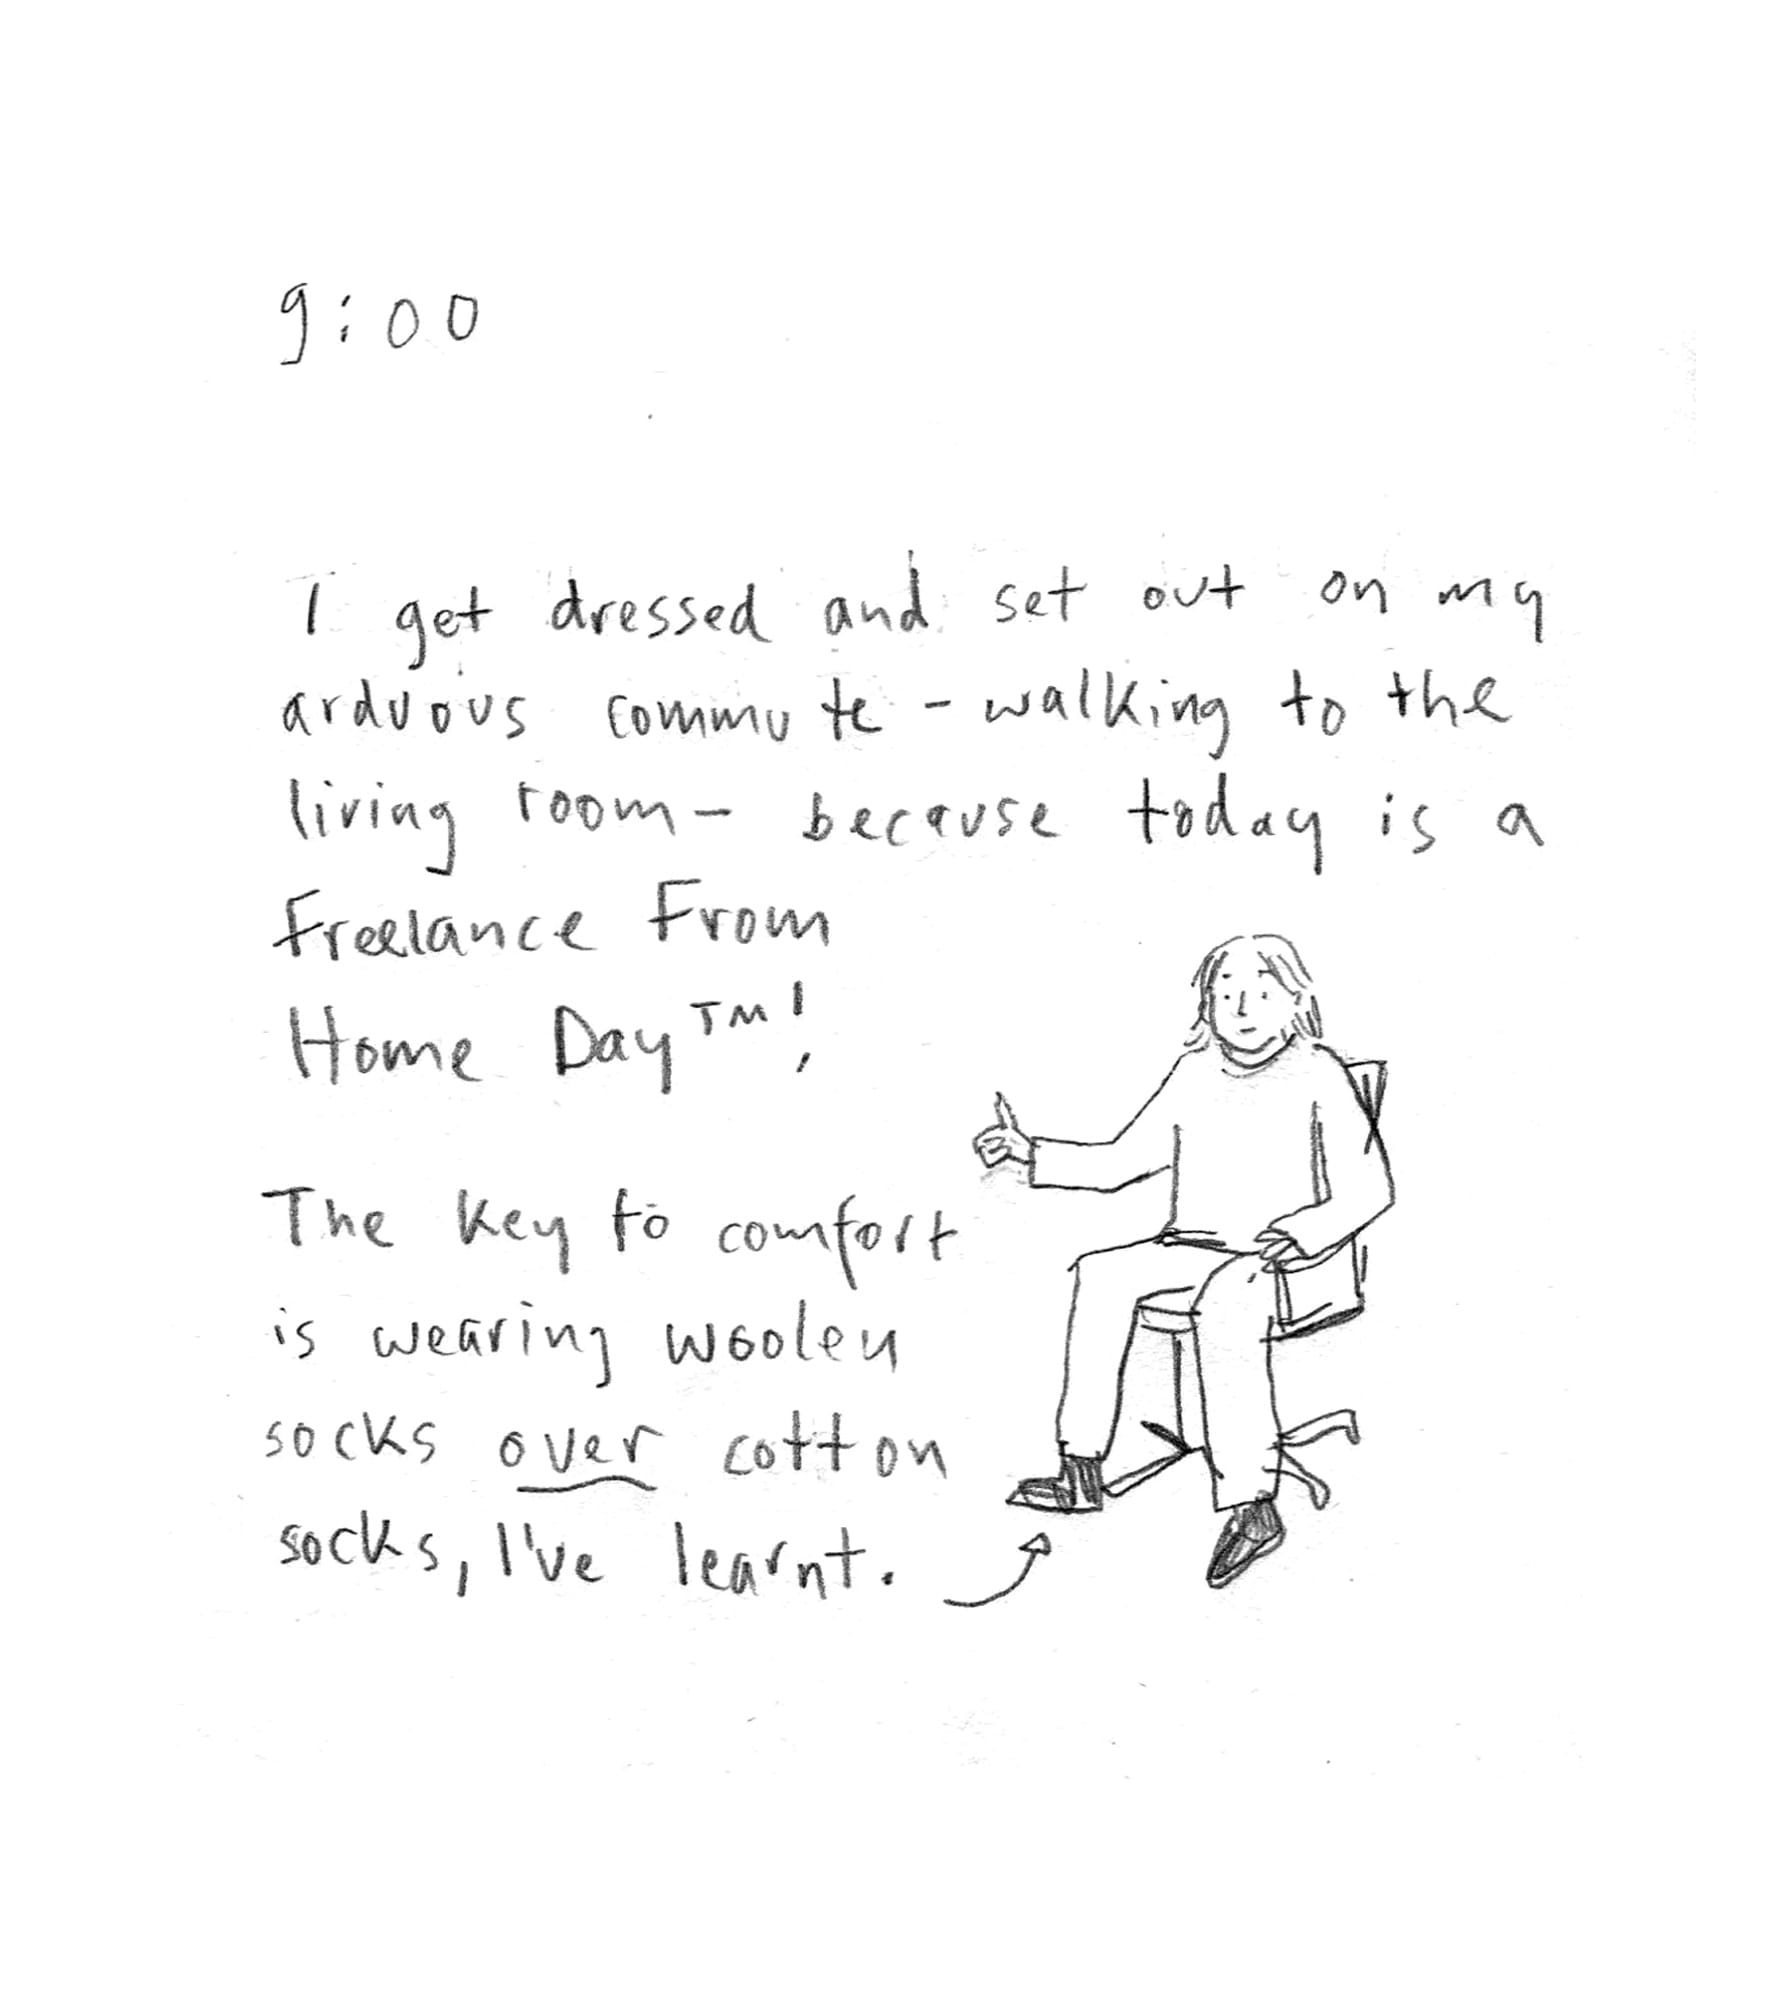 9:00
I get dressed and set out on my
arduous commute - walking to the
living room - because today is a
Freelance From
Home Day™!
The key to comfort
is wearing woolen
socks over cotton
socks, I've learnt.